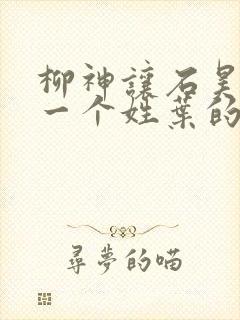 柳神讓石昊
一个姓葉的
尋夢的喵